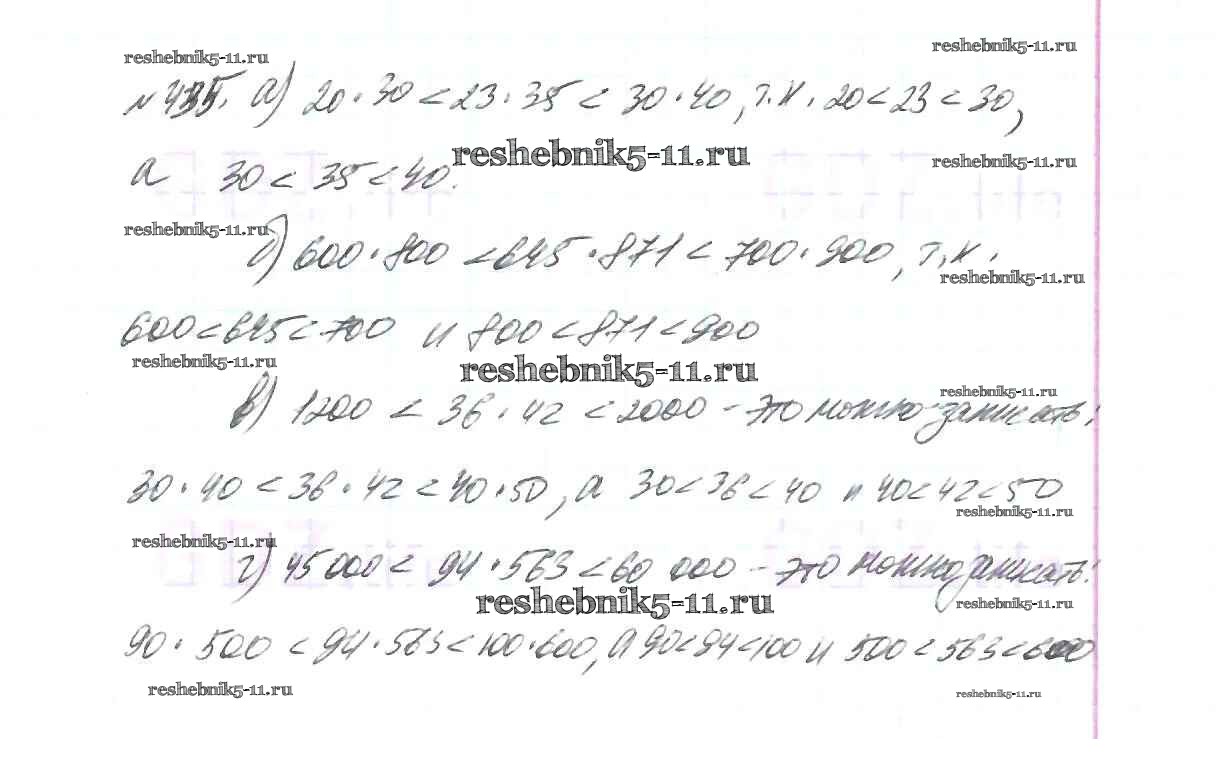 reshebnik5-11.ru reshebnik5-11.ru
№ 435. а) 20 · 30 < 23 · 35 < 30 · 40, т.к. 20 < 23 < 30,
reshebnik5-11.ru reshebnik5-11.ru
а 30 < 35 < 40.
reshebnik5-11.ru
б) 600 · 800 < 645 · 871 < 700 · 900, т.к.
reshebnik5-11.ru
600 < 645 < 700 и 800 < 871 < 900
reshebnik5-11.ru reshebnik5-11.ru reshebnik5-11.ru
в) 1200 < 36 · 42 < 2000 - это можно записать:
30 · 40 < 36 · 42 < 40 · 50, а 30 < 36 < 40 и 40 < 42 < 50
reshebnik5-11.ru
reshebnik5-11.ru
г) 45 000 < 94 · 563 < 60 000 - это можно записать:
reshebnik5-11.ru reshebnik5-11.ru
90 · 500 < 94 · 563 < 100 · 600, а 90 < 94 < 100 и 500 < 563 < 600
reshebnik5-11.ru reshebnik5-11.ru